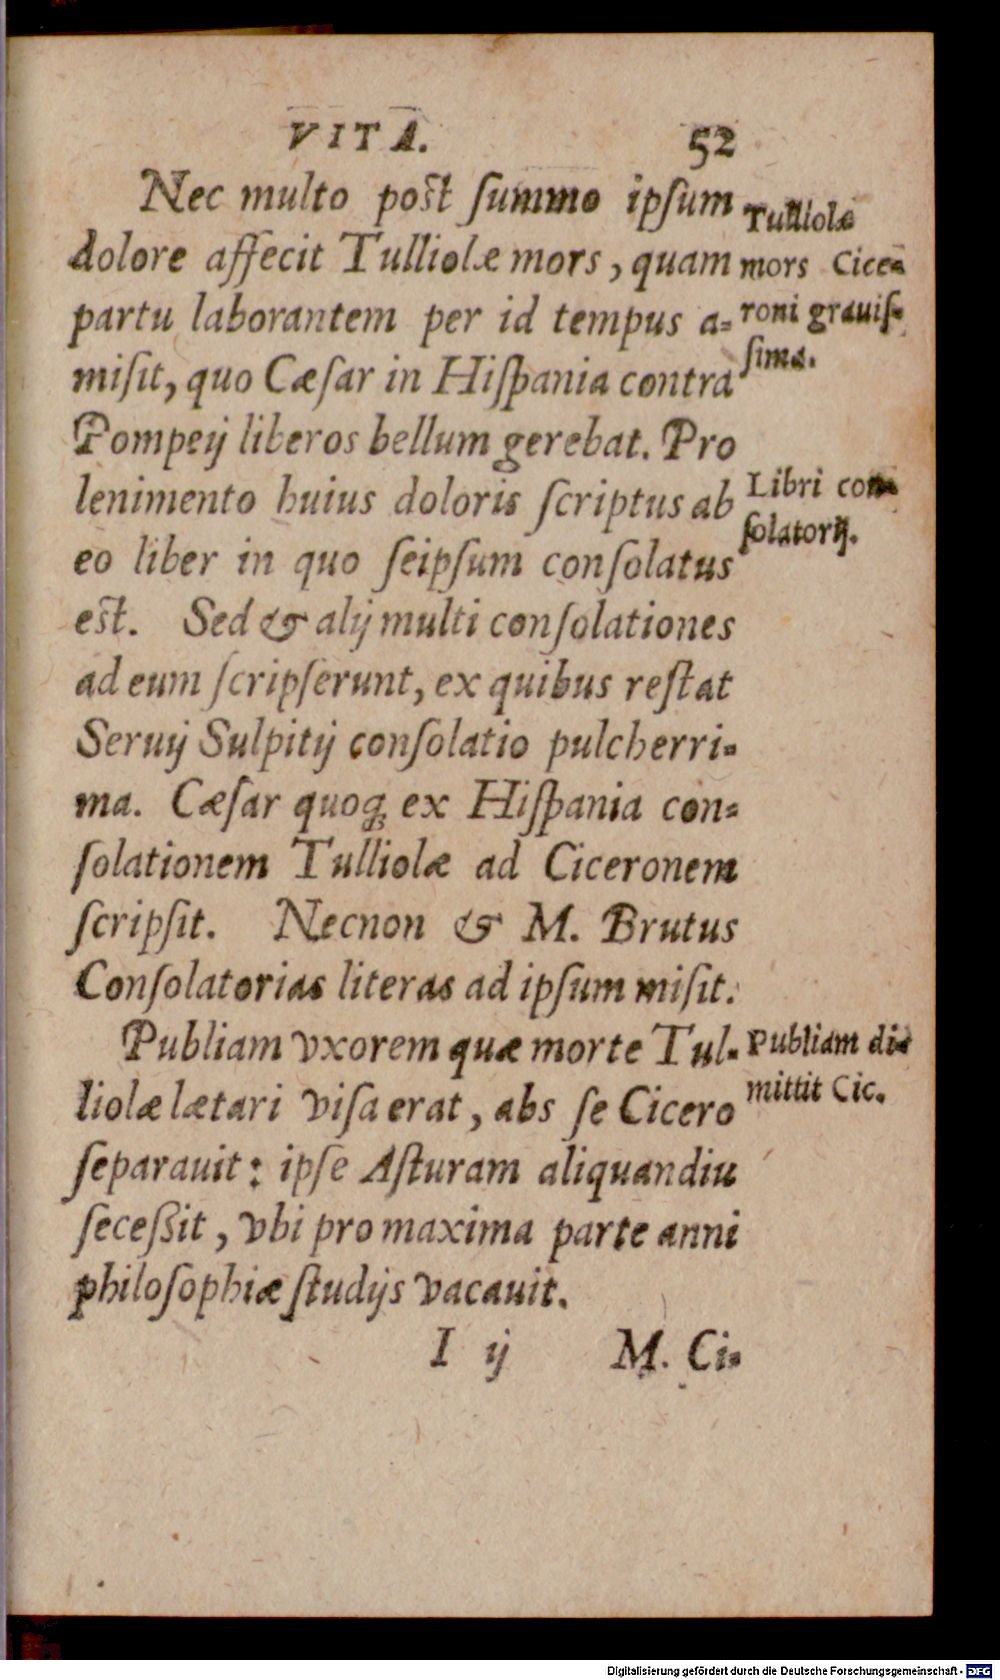 VITA. 52
Nec multo post ſummo ipſum
dolore affecit Tulliolæ mors, quam
partu laborantem per id tempus a-
miſit, quo Cæſar in Hiſpania contra
Pompeij liberos bellum gerebat. Pro
lenimento huius doloris ſcriptus ab
eo liber in quo ſeipſum conſolatus
est. Sed & alij multi conſolationes
ad eum ſcripſerunt, ex quibus reſtat
Seruij Sulpitij conſolatio pulcherri-
ma. Cæſar quoq; ex Hiſpania con-
ſolationem Tulliolæ ad Ciceronem
ſcripſit. Necnon & M. Brutus
Conſolatorias literas ad ipſum miſit.
Publiam vxorem quæ morte Tul-
liolæ lætari viſa erat, abs ſe Cicero
ſeparauit: ipſe Aſturam aliquandiu
ſeceßit, vbi pro maxima parte anni
philoſophiæ ſtudijs vacauit.
I ij M. Ci-
Tulliolæ
mors Cice-
roni grauiſ-
ſima.
Libri con
ſolatorij.
Publiam di-
mittit Cic.
Digitalisierung gefördert durch die Deutsche Forschungsgemeinschaft - DFG